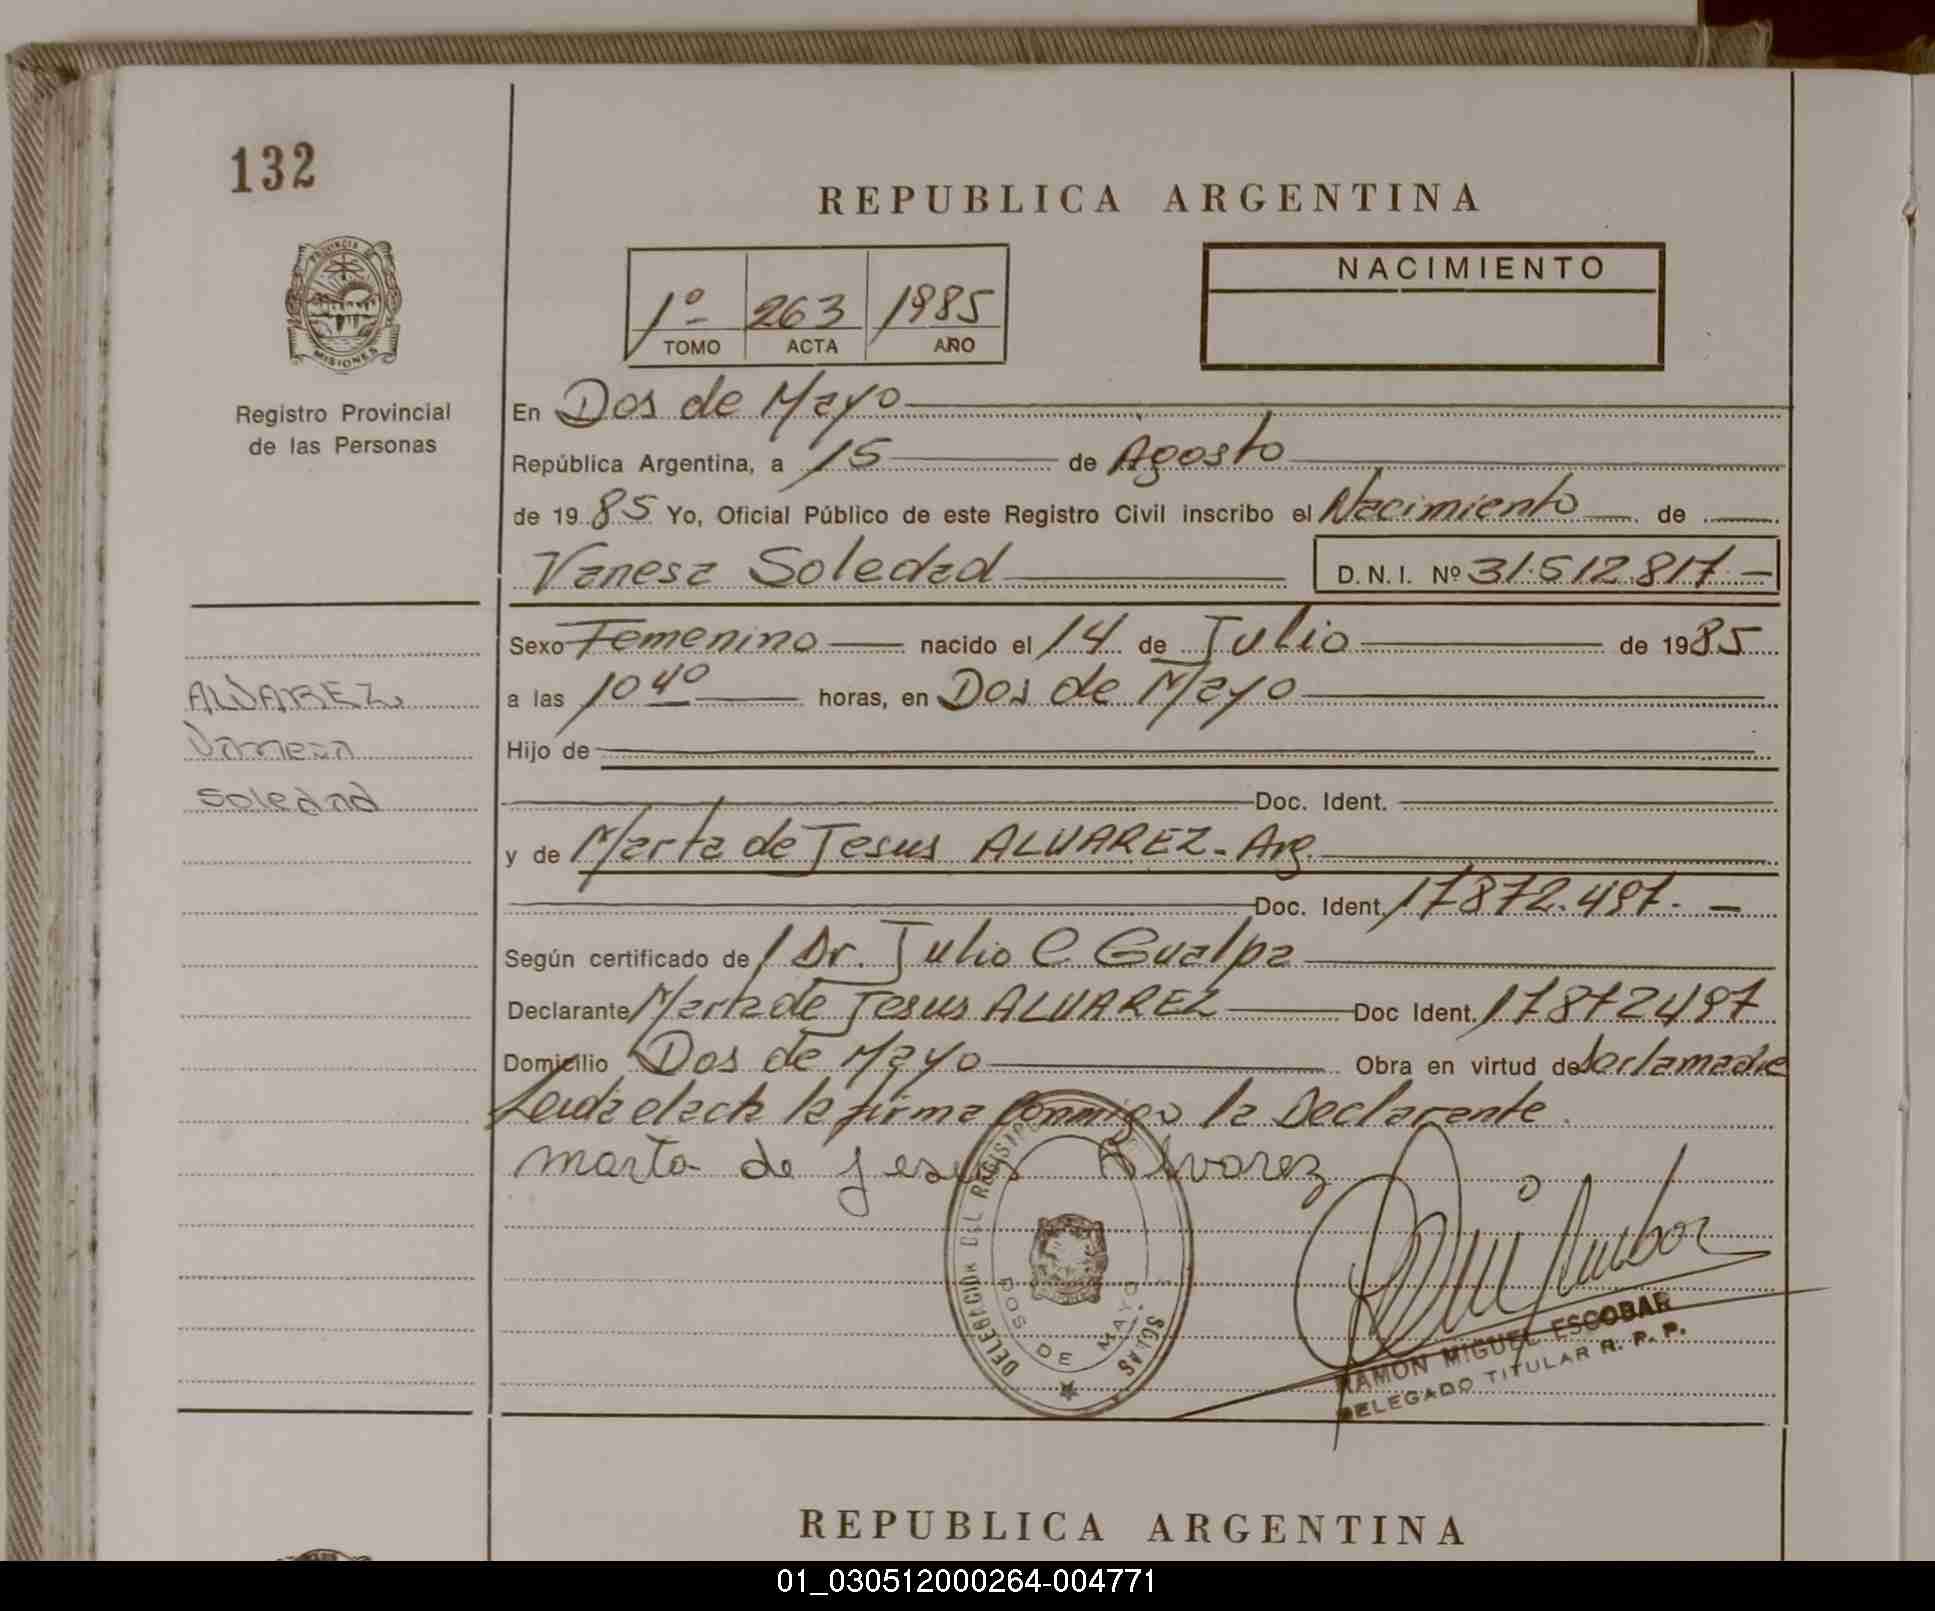 132
REPUBLICA ARGENTINA
PROVINCIA DE
MISIONES
Registro Provincial
de las Personas
1º 263 1985
TOMO ACTA AÑO
NACIMIENTO
En Dos de Mayo
República Argentina, a 15 de Agosto
de 1985 Yo, Oficial Público de este Registro Civil inscribo el Nacimiento de
Vanesa Soledad D.N.I. Nº 31.512.817.-
Sexo Femenino nacido el 14 de Julio de 1985
a las 10 40 horas, en Dos de Mayo
ALVAREZ
Vanesa
Soledad
Hijo de
Doc. Ident.
y de Marta de Jesus ALVAREZ - Arg.
Doc. Ident. 17872.497.-
Según certificado de Dr. Julio C. Gualpa
Declarante Marta de Jesus ALVAREZ Doc Ident. 17872497
Domicilio Dos de Mayo Obra en virtud de ser la madre
Leida el acta la firma conmigo la Declarante.
marta de jesus Alvarez
DELEGACION DEL REGISTRO
DOS DE MAYO
RAMON MIGUEL ESCOBAR
DELEGADO TITULAR R. P. P.
REPUBLICA ARGENTINA
01_030512000264-004771